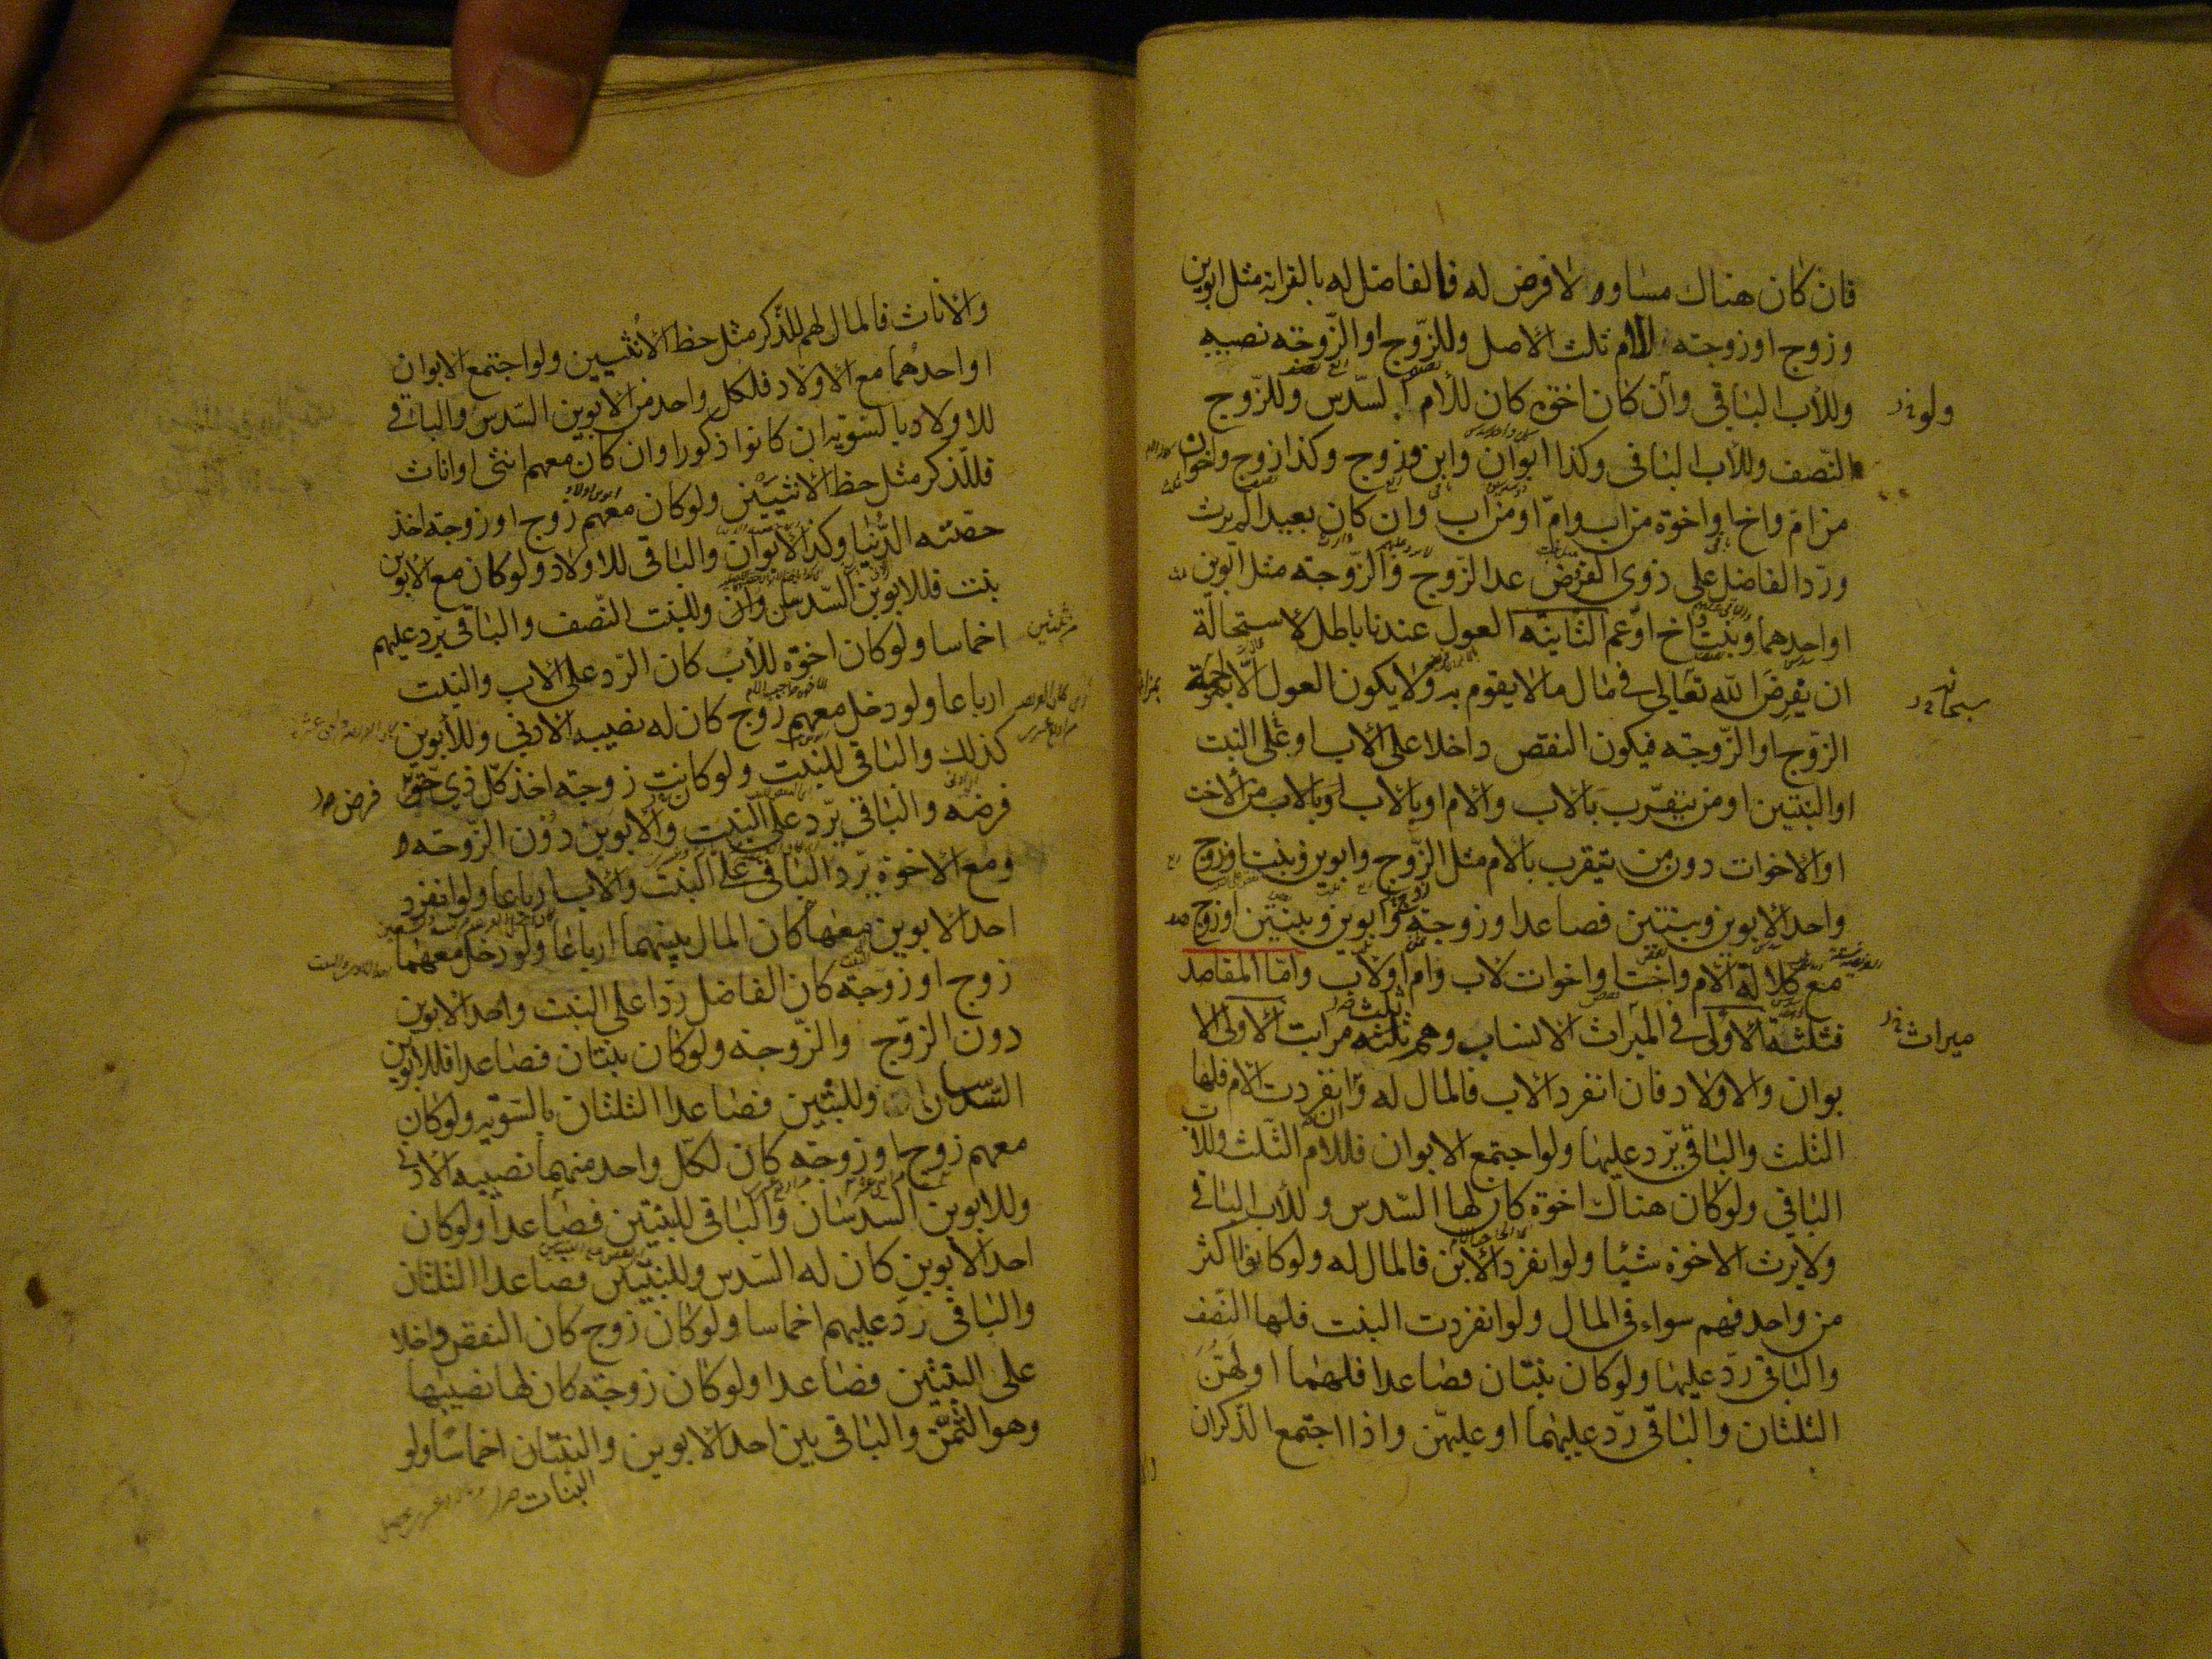 فان كان هناك مساو ولا فرض له فالفاضل له بالقرابة مثل ابوين
وزوج او زوجته للام ثلث الاصل وللزّوج او الزّوجته نصيبه
وللأب الباقى وان كان اخوة كان للأم السّدس وللزّوج
النّصف وللأب الباقى وكذا ابوان وابن وزوج وكذا زوج واخوان
من امّ واخ او اخوة من اب وامّ او من اب وان كان بعيدا لم يرث
وردّ الفاضل على ذوى الفرض عدا الزّوج والزّوجته مثل ابوين
او احدهما وبنت واخ او عم الثانيته العول عندنا باطل لاستحالة
ان يفرض الله تعالى فى مال ما لا يقوم به ولا يكون العول الّا بمزاحمة
الزّوج او الزّوجته فيكون النقص داخلا على الاب او على البنت
او البنتين او من يتقرّب بالاب والام او بالاب من الاخت
او الاخوات دون من يتقرب بالام مثل الزّوج وابوين وبنت او زوج
واحد الابوين وبنتين فصاعدا او زوجته وابوين وبنتين او زوج
مع كلالة الام واخت او اخوات لاب وام او لاب وامّا المقاصد
فثلثة الاوّلى فى الميراث الانساب وهم ثلثه مراتب الاولى الا
بوان والاولاد فان انفرد الاب فالمال له وان انفردت الام فلها
الثلث والباقى يردّ عليها ولو اجتمع الابوان فللام الثلث وللاب
الباقى ولو كان هناك اخوة كان لها السّدس وللأب الباقى
ولا يرث الاخوة شيئا ولو انفرد الابن فالمال له ولو كانوا اكثر
من واحد فهم سواء فى المال ولو انفردت البنت فلها النّصف
والباقى ردّ عليها ولو كان بنتان فصاعدا فلهما او لهنّ
الثلثان والباقى ردّ عليهما او عليهنّ واذا اجتمع الذكران
ولو
سبحانه
ميراث
والاناث فالمال لهم للذّكر مثل حظ الانثيين ولو اجتمع الابوان
او احدهما مع الاولاد فلكل واحد من الابوين السّدس والباقى
للاولاد بالسّويه ان كانوا ذكورا وان كان معهم انثى او اناث
فللذّكر مثل حظ الانثيين ولو كان معهم زوج او زوجته اخذ
حصّته الدّنيا وكذا الابوان والباقى للاولاد ولو كان مع الابوين
بنت فللابوين السّدسان وللبنت النّصف والباقى يردّ عليهم
اخماسا ولو كان اخوة للأب كان الرّد على الاب والبنت
ارباعا ولو دخل معهم زوج كان له نصيبه الادنى وللأبوين
كذلك والباقى للبنت ولو كانت زوجته اخذ كلّ ذى حق
فرضه والباقى يردّ على البنت والابوين دون الزّوجته و
ومع الاخوة يردّ الباقى على البنت والاب ارباعا ولو انفرد
احد الابوين معها كان المال بينهما ارباعا ولو دخل معهما
زوج او زوجّة كان الفاضل ردّا على البنت واحد الابوين
دون الزّوج والزّوجته ولو كان بنتان فصاعدا فللابوين
السّدسان وللبنتين فصاعدا الثلثان بالسّويه ولو كان
معهم زوج او زوجته كان لكلّ واحد منهما نصيبه الادنى
وللابوين السّدسان والباقى للبنتين فصاعدا ولو كان
احد الأبوين كان له السّدس وللبنتين فصاعدا الثلثان
والباقى ردّ عليهم اخماسا ولو كان زوج كان النقص داخلا
على البنتين فصاعدا ولو كان زوجّة كان لها نصيبها
وهو الثّمن والباقى بين احد الابوين والبنتان اخماسا ولو
فرض
البنات